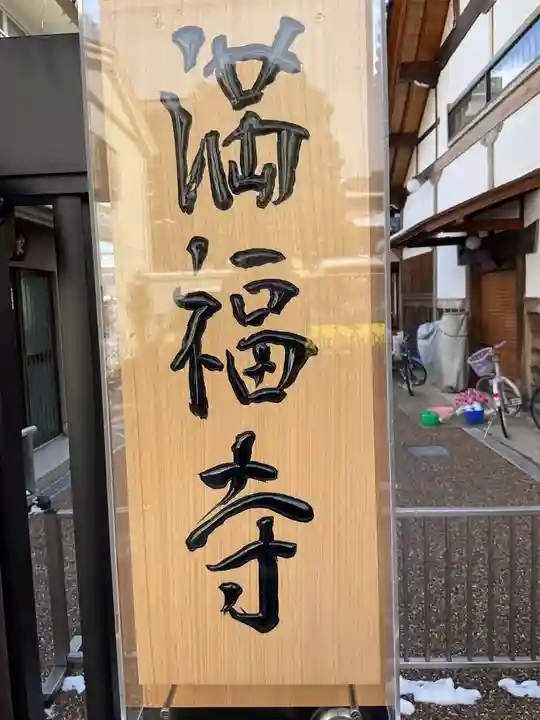 満福寺